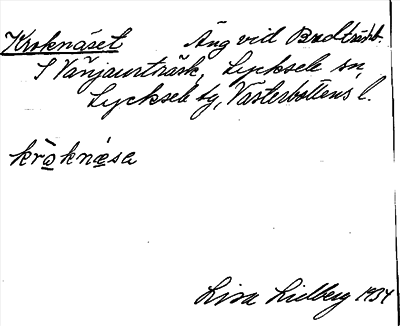 Kroknäset Äng vid Brudträsk.
S Vänjaurträsk, Lycksele sn,
Lycksele tg, Västerbottens l.
kròknæsa
Lisa Lidberg 1934